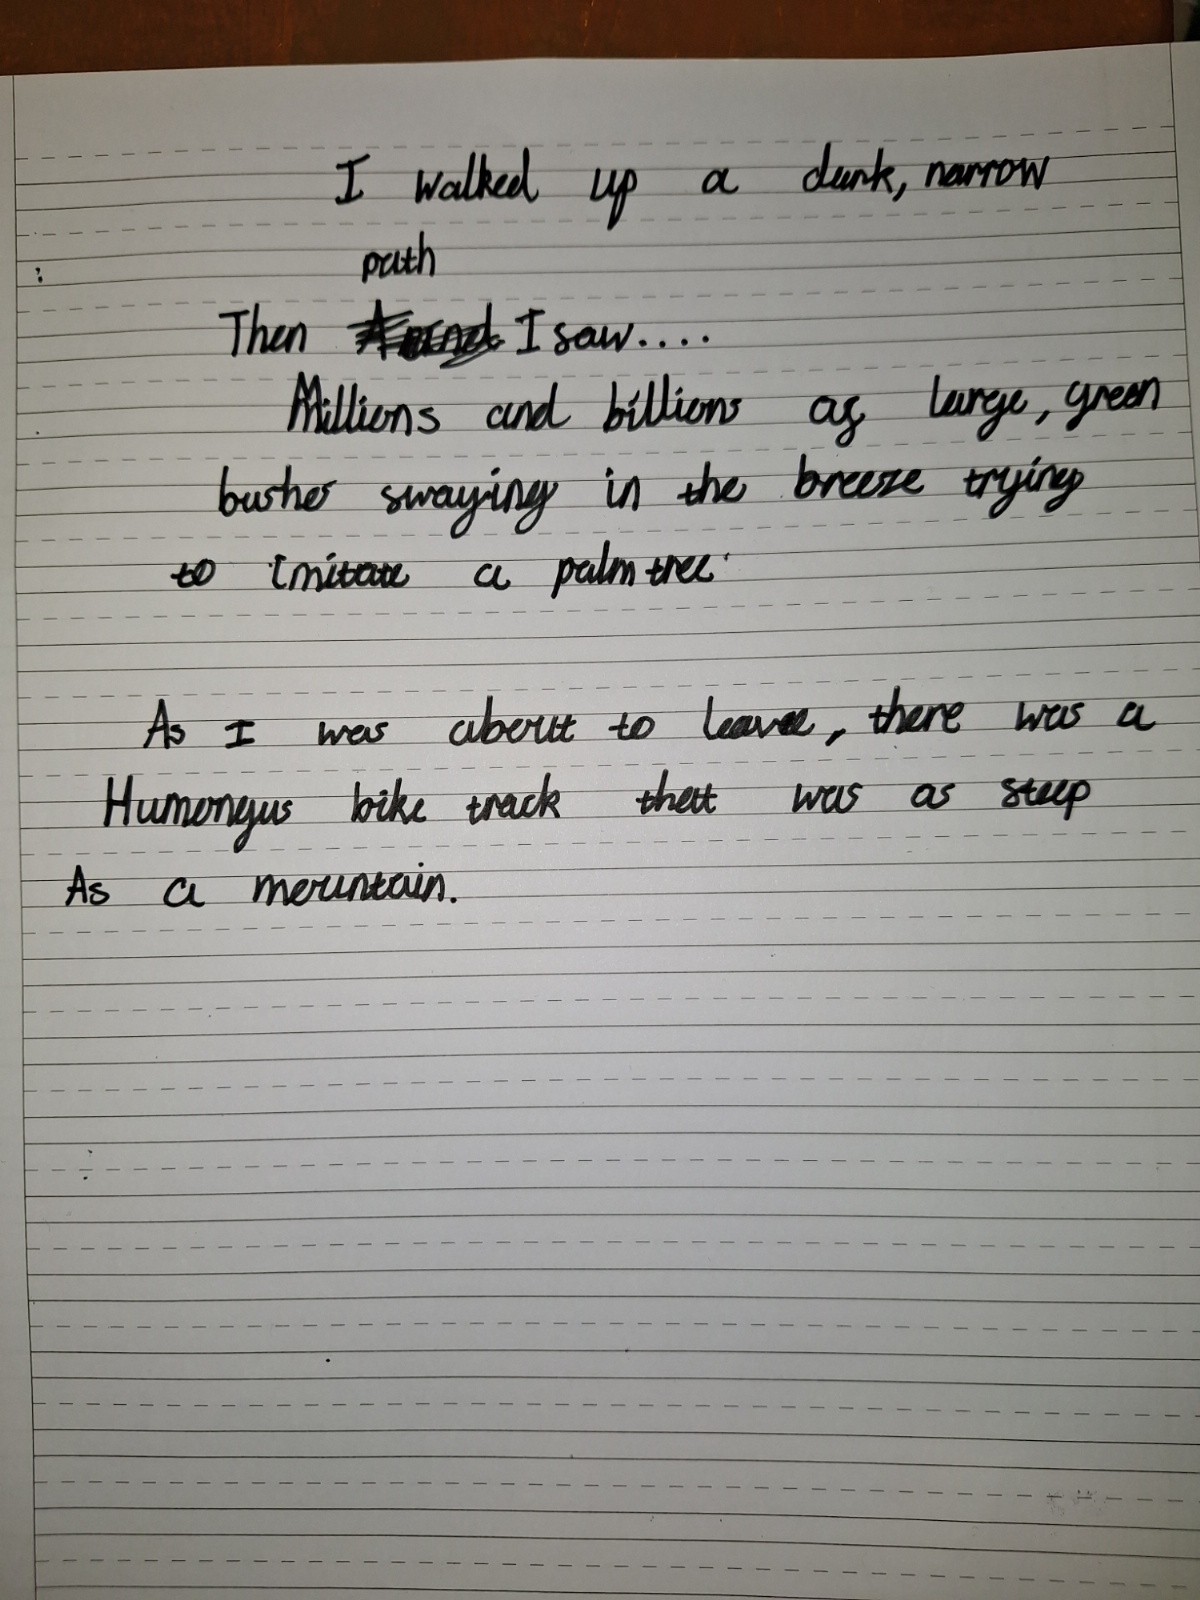 I walked up a dark, narrow
path
Then I saw....
Millions and billions of large, green
bushes swaying in the breeze trying
to imitate a palm tree.
As I was about to leave, there was a
Humongus bike track that was as steep
As a mountain.